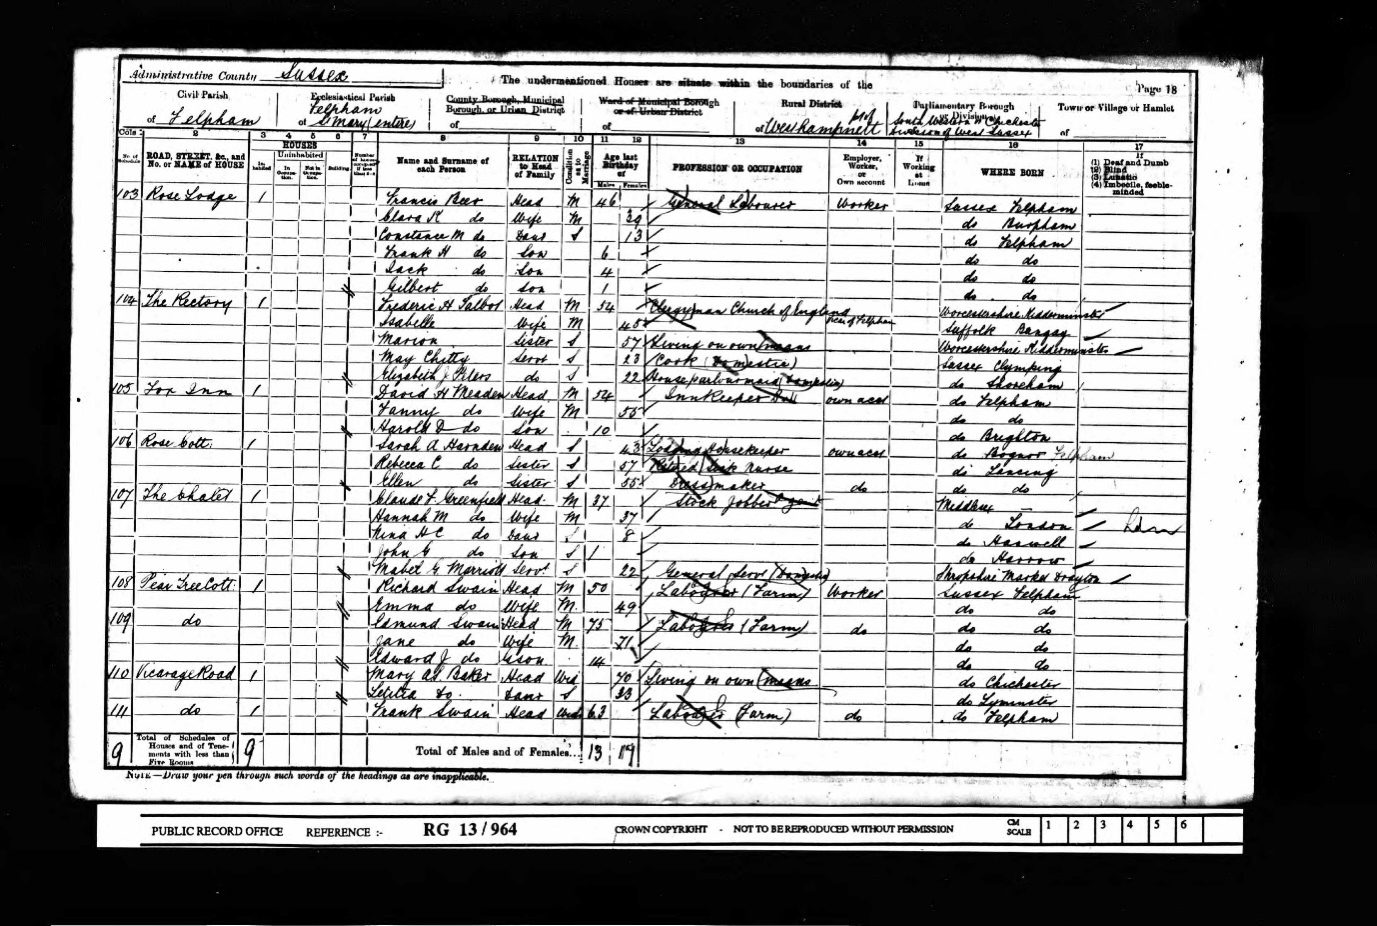 Administrative County Sussex
The undermentioned Houses are situate within the boundaries of the
Page 18
Civil Parish
of Felpham
Ecclesiastical Parish
of Felpham St Mary (entire)
County Borough, Municipal Borough, or Urban District
of
Ward of Municipal Borough or of Urban District
of
Rural District
of Westhampnett
Parliamentary Borough or Division of
South Western or Chichester Division of West Sussex
Town or Village or Hamlet
of
Cols: 1 2 3 4 5 6 7 8 9 10 11 12 13 14 15 16 17
No. of Schedule
ROAD, STREET, &c., and No. or NAME of HOUSE
HOUSES
Inhabited
Uninhabited
In Occupation.
Not in Occupation.
Building
Name and Surname of each Person
RELATION to Head of Family
Condition as to Marriage
Age last Birthday of
Males Females
PROFESSION OR OCCUPATION
Employer, Worker, or Own account
If Working at Home
WHERE BORN
If
(1) Deaf and Dumb
(2) Blind
(3) Lunatic
(4) Imbecile, feeble-minded
103 Rose Lodge 1 Francis Beer Head M 46 General Labourer Worker Sussex Felpham
Clara K do Wife M 39 do Burpham
Constance M do Daur S 13 do Felpham
Frank H do Son 6 do do
Jack do Son 4 do do
Gilbert do Son 1 do do
104 The Rectory 1 Frederic H Talbot Head M 54 Clergyman Church of England Worcestershire Kidderminster
Isabelle Wife M 45 Suffolk Bungay
Marion Sister S 57 Living on own means Worcestershire Kidderminster
May Chitty Servt S 23 Cook (Domestic) Sussex Clymping
Elizabeth J Peters do S 22 House parlourmaid (Domestic) do Shoreham
105 Fox Inn 1 David H Meaden Head M 54 Innkeeper own acct do Felpham
Fanny do Wife M 55 do do
Harold D do Son 10 do Brighton
106 Rose Cott: 1 Sarah A Harnden Head S 43 Lodging Housekeeper own acct do Bognor Felpham
Rebecca C do Sister S 57 Retired Sick Nurse do Lancing
Ellen do Sister S 55 Dressmaker do do do
107 The Chalet 1 Claude F. Greenfield Head M 37 Stock Jobber Middlesex
Hannah M do Wife M 37 do London
Nina H C do Daur S 8 do Haswell
John G do Son S 1 do Harrow
Mabel G Marriott Servt S 22 General Serv (Domestic) Shropshire Market Drayton
108 Pear Tree Cott: 1 Richard Swain Head M 50 Labourer (Farm) Worker Sussex Felpham
Emma do Wife M 49 do do
109 do Edmund Swain Head M 75 Labourer (Farm) do do do
Jane do Wife M 71 do do
Edward J do Gson 14 do do
110 Vicarage Road 1 Mary A Baker Head Wid 70 Living on own means do Chichester
Letitia do. Daur S 33 do Lyminster
111 do 1 Frank Swain Head Widr 63 Labourer (Farm) do do Felpham
9 Total of Schedules of Houses and of Tenements with less than Five Rooms 9 Total of Males and of Females... 13 19
NOTE—Draw your pen through such words of the headings as are inapplicable.
PUBLIC RECORD OFFICE REFERENCE :- RG 13/964 CROWN COPYRIGHT - NOT TO BE REPRODUCED WITHOUT PERMISSION CM SCALE 1 2 3 4 5 6